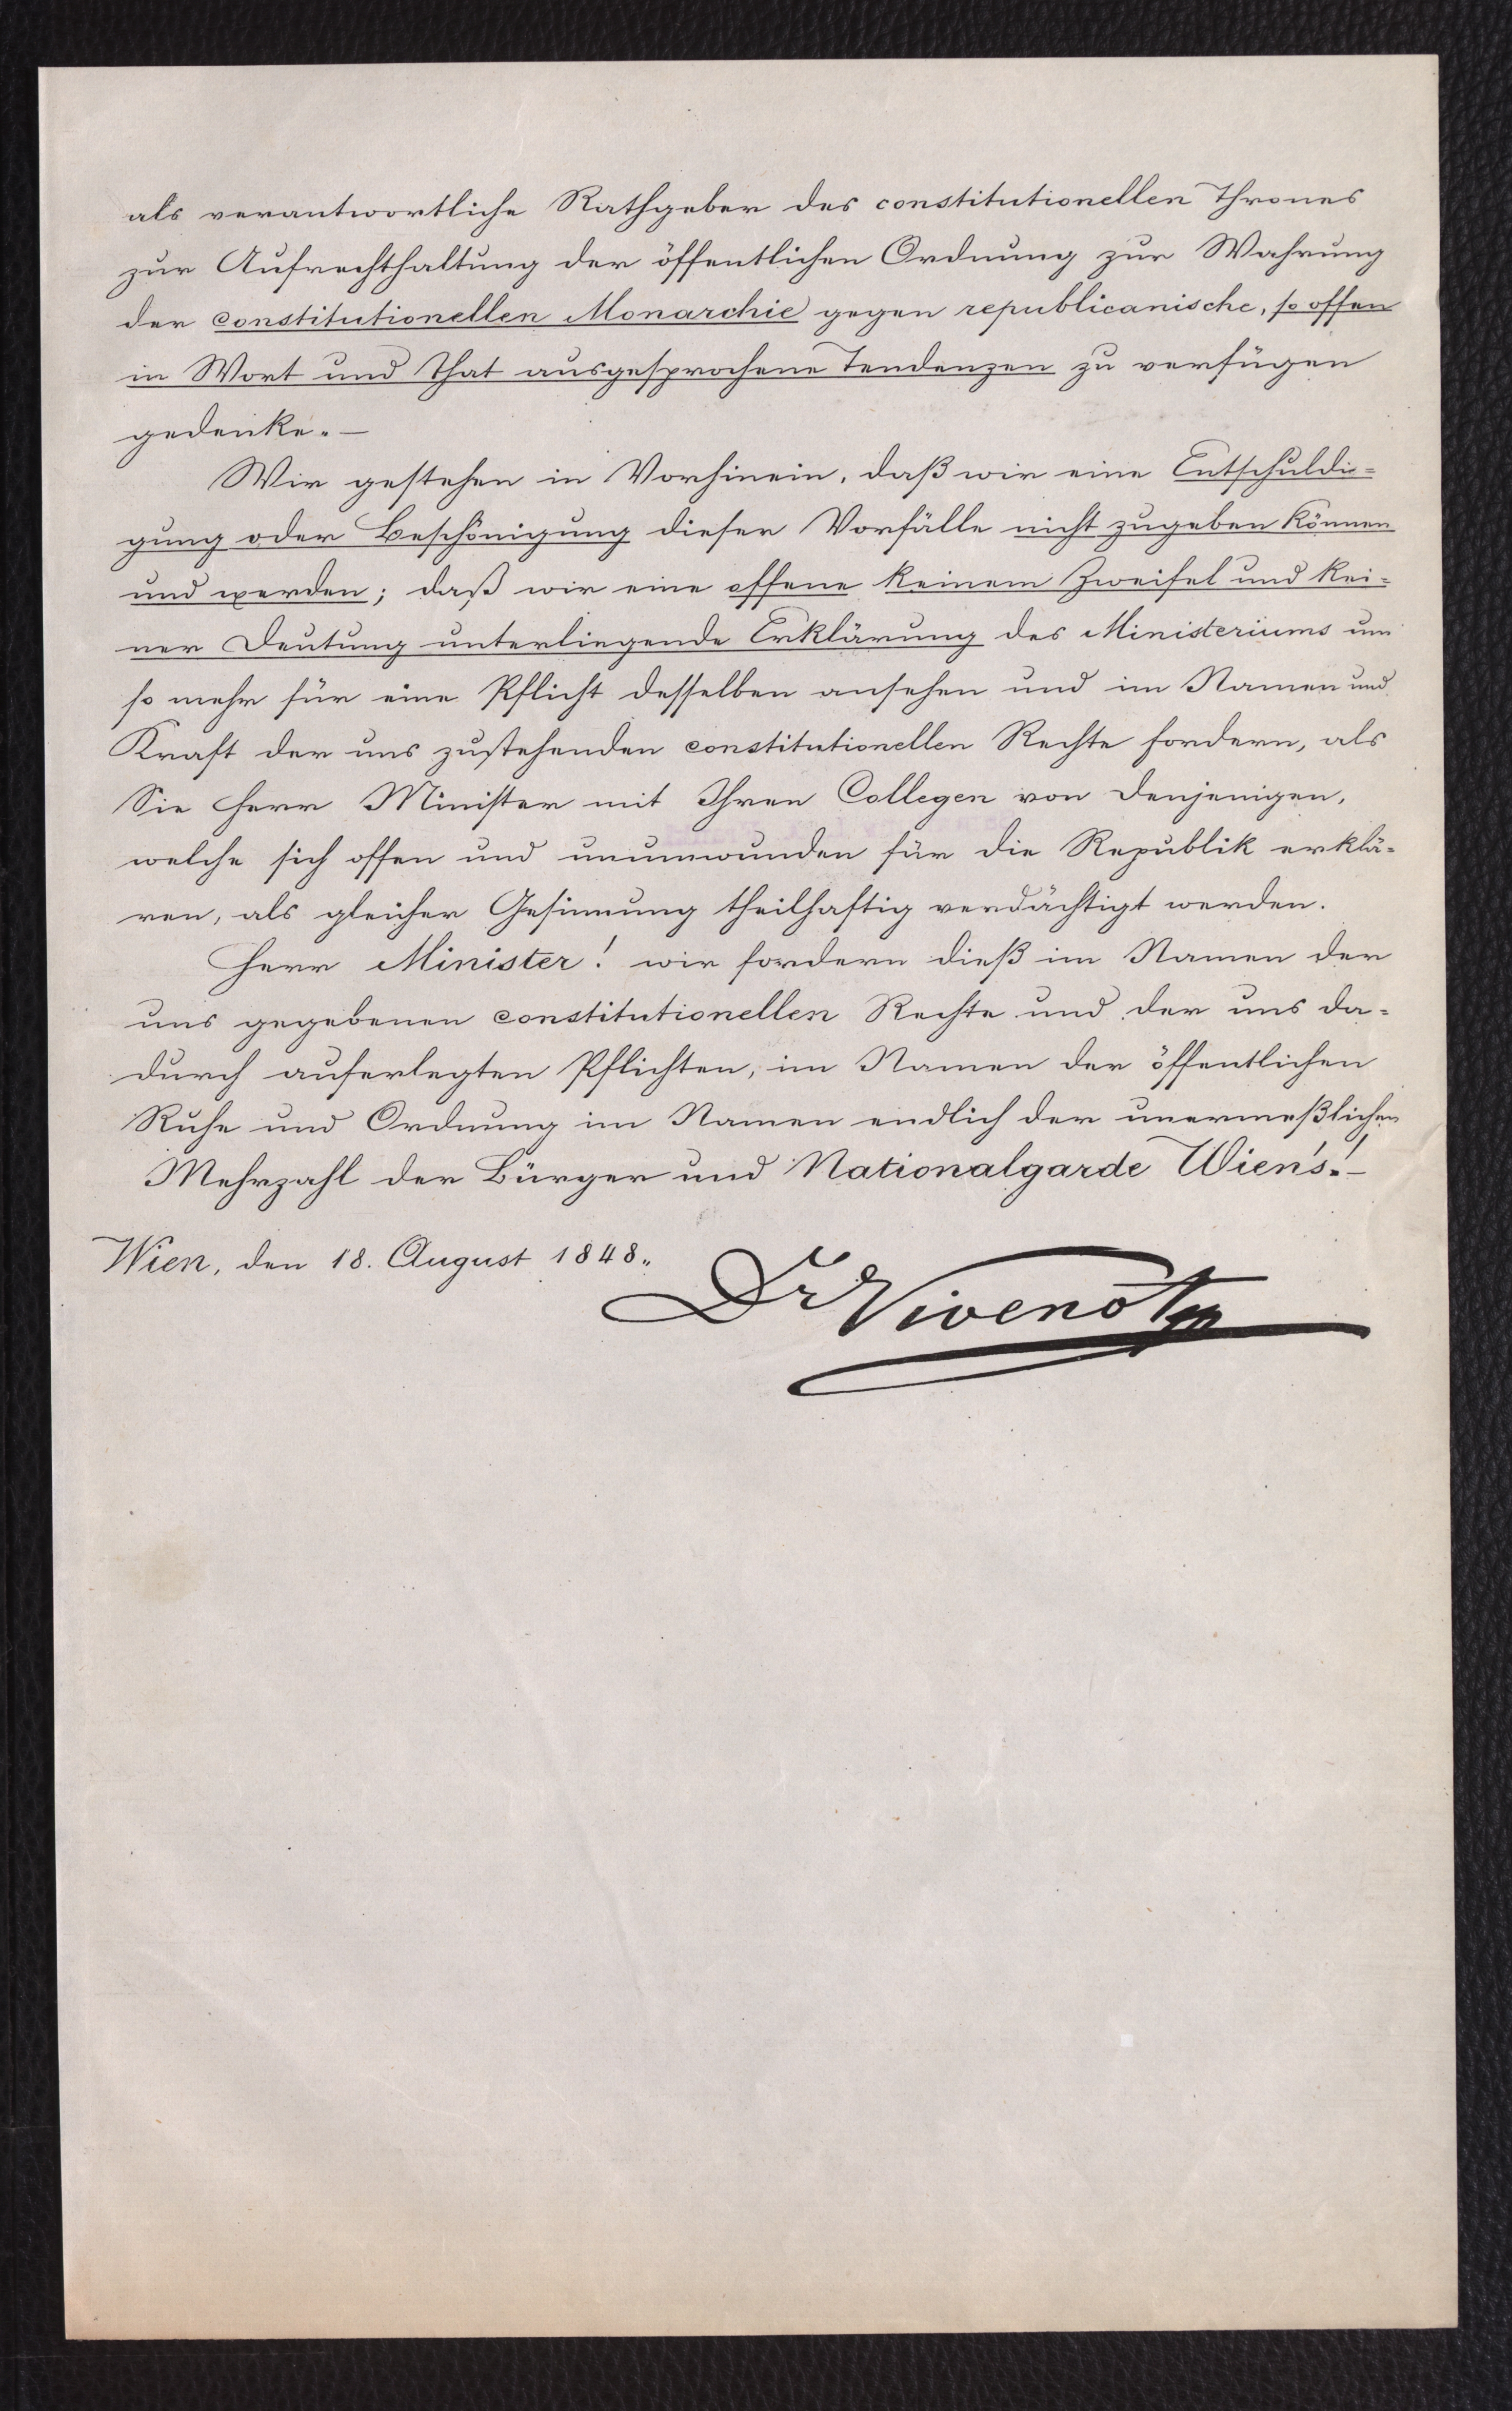 als verantwortliche Rathgeber des constitutionellen Thrones
zur Aufrechthaltung der öffentlichen Ordnung zur Wahrung
der constitutionellen Monarchie gegen republicanische, so offen
in Wort und That ausgesprochene Tendenzen zu verfügen
gedenke. —
Wir gestehen in Vorhinein, daß wir eine Entschuldi-
gung oder Beschönigung dieser Vorfälle nicht zugeben können
und werden; daß wir eine offene keinem Zweifel und kei-
ner Deutung unterliegende Erklärung des Ministeriums um
so mehr für eine Pflicht desselben ansehen und im Namen und
Kraft der uns zustehenden constitutionellen Rechte fordern, als
Sie Herr Minister mit Ihren Collegen von denjenigen,
welche sich offen und unumwunden für die Republik erklä-
ren, als gleicher Gesinnung theilhaftig verdächtigt werden.
Herr Minister! wir fordern dieß im Namen der
uns gegebenen constitutionellen Rechte und der uns da-
durch auferlegten Pflichten, im Namen der öffentlichen
Ruhe und Ordnung im Namen endlich der unermeßlichen
Mehrzahl der Bürger und Nationalgarde Wien's! —
Wien, den 18. August 1848.
Dr Vivenot